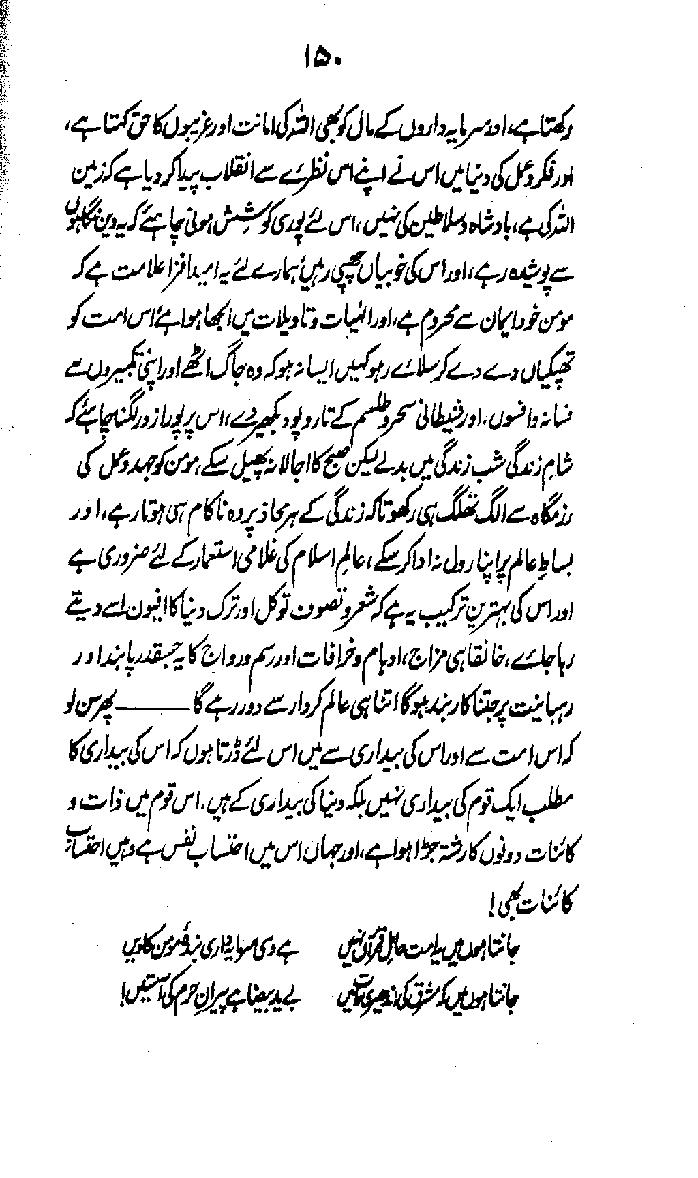 ۱۵۰
رکھتا ہے، اور سرمایہ داروں کے مال کو بھی اللہ کی امانت اور غریبوں کا حق کہتا ہے،
اور فکر و عمل کی دنیا میں اس نے اپنے اس نظریے سے انقلاب پیدا کر دیا ہے کہ زمین
اللہ کی ہے، بادشاہ و سلاطین کی نہیں، اس لئے پوری کوشش ہونی چاہئے کہ یہ دین نگاہوں
سے پوشیدہ رہے، اور اس کی خوبیاں چھپی رہیں، ہمارے لئے یہ امید افزا علامت ہے کہ
مومن خود ایمان سے محروم ہے، اور الٰہیات و تاویلات میں الجھا ہوا ہے، اس امت کو
تھپکیاں دے دے کر سلاتے رہو کہیں ایسا نہ ہو کہ وہ جاگ اٹھے اور اپنی تکبیروں سے
فسانہ و افسوں، اور شیطانی سحر و طلسم کے تار و پود بکھیر دے، اس پر پورا زور لگنا چاہئے کہ
شام زندگی شب زندگی میں بدلے لیکن صبح کا اجالا نہ پھیل سکے، مومن کو جہد و عمل کی
رزمگاہ سے الگ تھلگ ہی رکھو تاکہ زندگی کے ہر محاذ پر وہ ناکام ہی ہوتا رہے، اور
بساطِ عالم پر اپنا رول نہ ادا کر سکے، عالمِ اسلام کی غلامی استعمار کے لئے ضروری ہے
اور اس کی بہترین ترکیب یہ ہے کہ شعر و تصوف توکل اور ترک دنیا کا افیون اسے دیتے
رہا جائے، خانقاہی مزاج، اوہام و خرافات اور رسم و رواج کا یہ جسقدر پابند اور
رہبانیت پر جتنا کاربند ہوگا اتنا ہی عالم کردار سے دور رہے گا ــــــــ پھر سن لو
کہ اس امت سے اور اس کی بیداری سے میں اس لئے ڈرتا ہوں کہ اس کی بیداری کا
مطلب ایک قوم کی بیداری نہیں بلکہ دنیا کی بیداری کے ہیں. اس قوم میں ذات و
کائنات دونوں کا رشتہ جڑا ہوا ہے، اور جہاں اس میں احتساب نفس ہے وہیں احتساب
کائنات بھی!
جانتا ہوں میں یہ امت حامل قرآں نہیں ہے وہی سرمایہ داری بندۂ مومن کا دیں
جانتا ہوں میں کہ مشرق کی اندھیری رات میں بے ید بیضا ہے پیرانِ حرم کی آستیں!